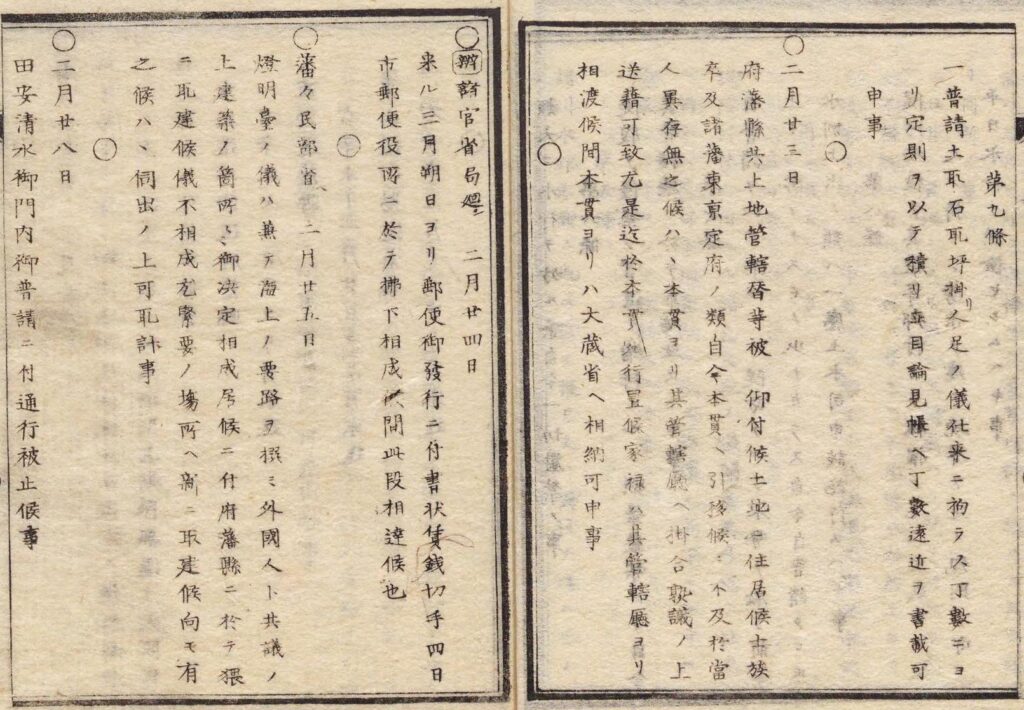 第九條
一普請土取石取坪掛リ人足ノ儀仕来ニ拘ラス丁數ニヨ
リ定則ヲ以テ積リ立目論見帳ヘ丁數遠近ヲ書載可
申事
二月廿三日
府藩縣共上地管轄替等被 仰付候土地ニ住居候士族
卒及諸藩東京定府ノ類自今本貫ヘ引移候ニ不及於當
人異存無之候ハヽ本貫ヨリ其管轄廳ヘ掛合熟議ノ上
送籍可致尤是迄於本貫施行置候家禄ハ其管轄廳ヨリ
相渡候間本貫ヨリハ大蔵省ヘ相納可申事
辨 諸官省局廻 二月廿四日
来ル三月朔日ヨリ郵便御發行ニ付書状賃錢切手四日
市郵便役所ニ於テ拂下相成候間此段相達候也
藩々民部省二月廿五日
燈明臺ノ儀ハ兼テ海上ノ要路ヲ撰ミ外國人ト共議ノ
上建築ノ箇所々々御决定相成居候ニ付府藩縣ニ於テ猥
ニ取建候儀不相成尤緊要ノ塲所ヘ新ニ取建候向モ有
之候ハヽ伺出ノ上可取計事
二月廿八日
田安清水御門内御普請ニ付通行被止候事